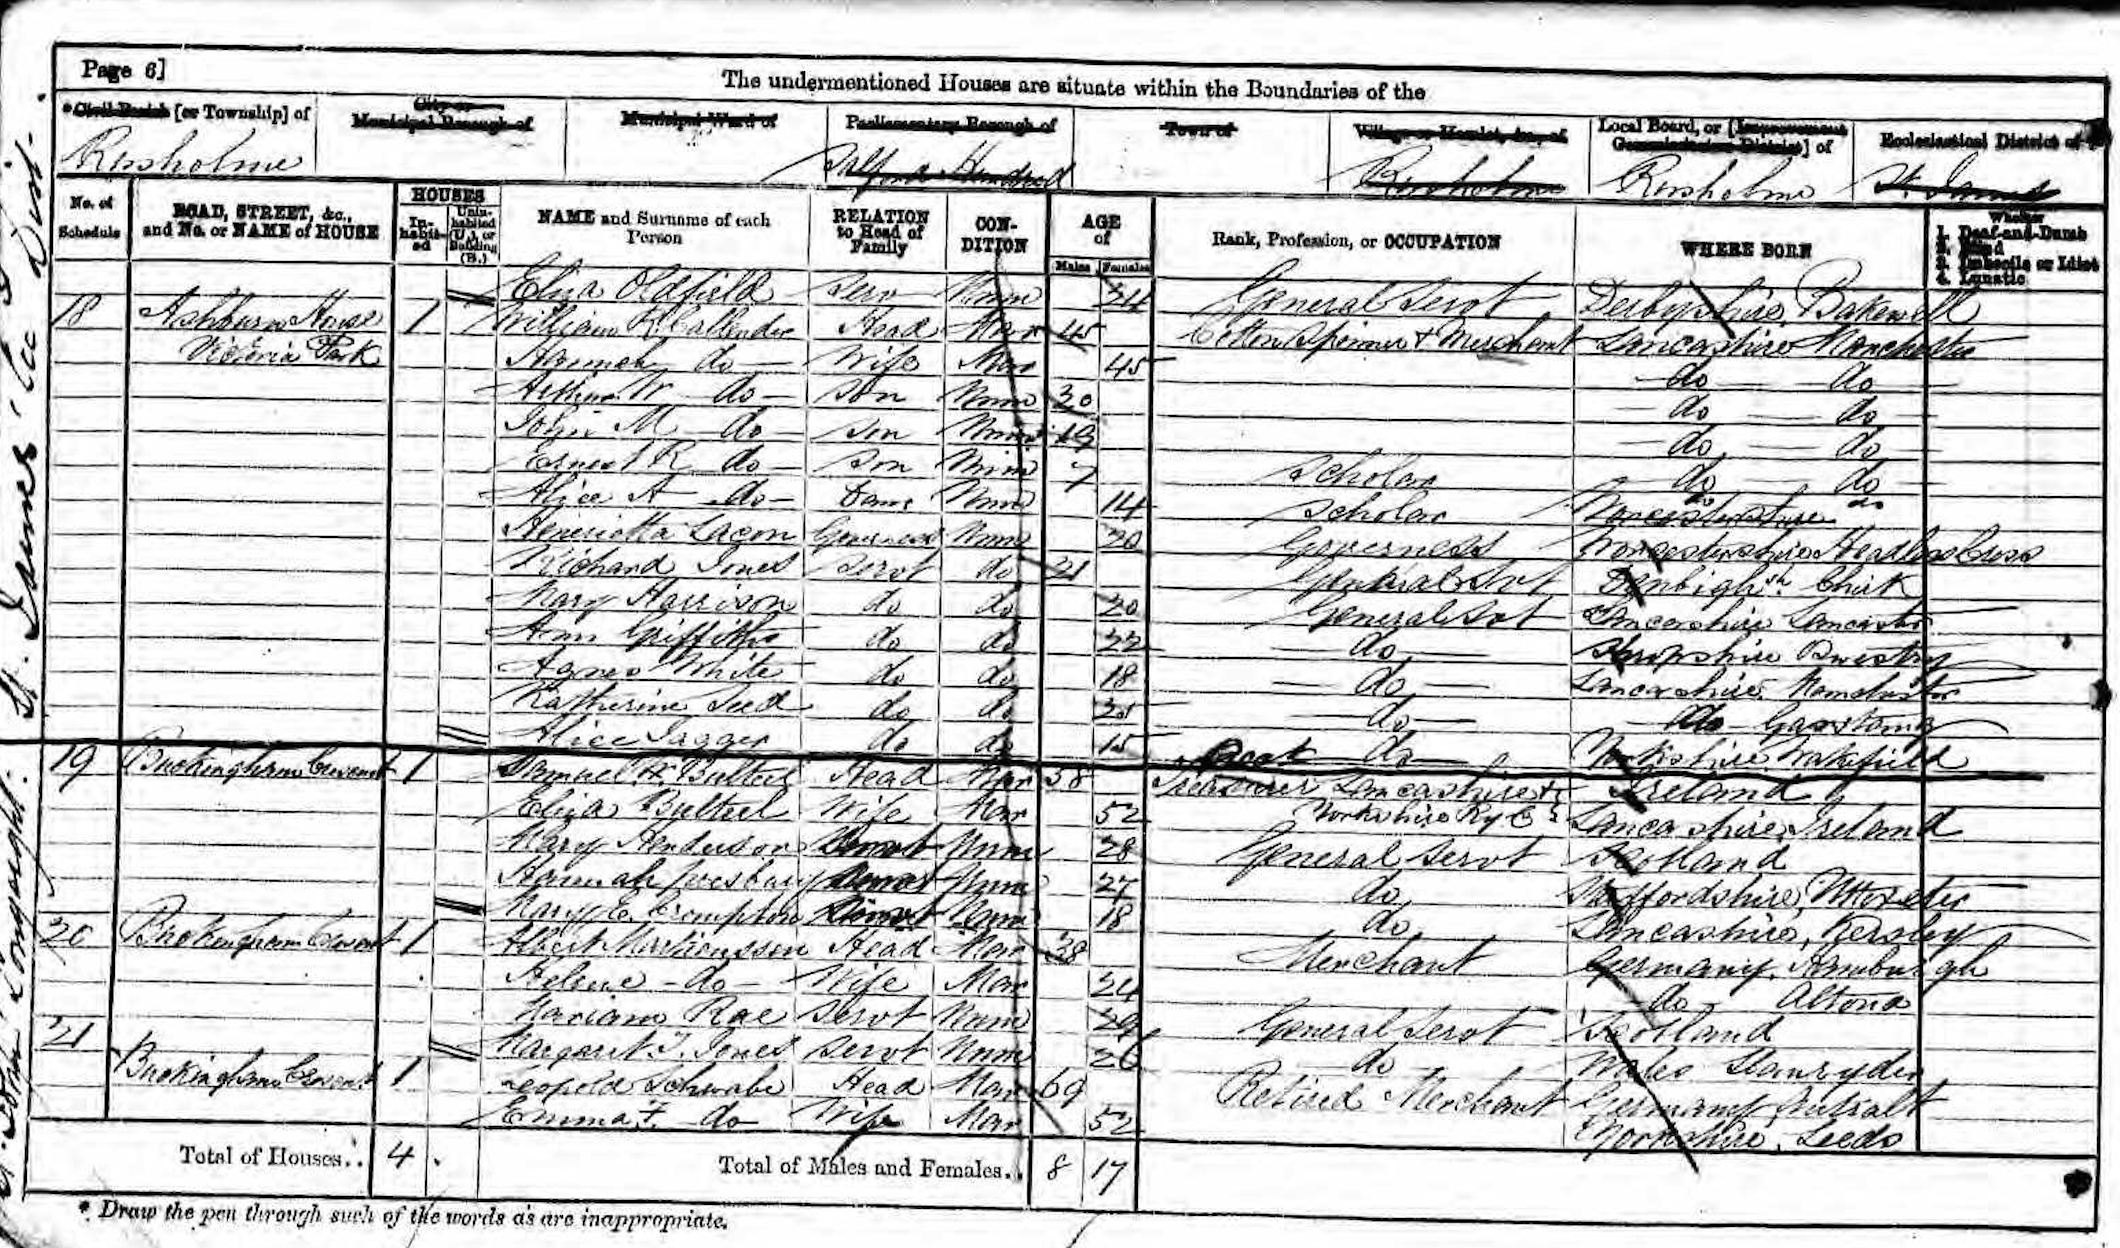 Page 6]
The undermentioned Houses are situate within the Boundaries of the
*Civil Parish [or Township] of
City or Municipal Borough of
Municipal Ward of
Parliamentary Borough of
Town of
Village or Hamlet, &c., of
Local Board, or [Improvement Commissioners District] of
Ecclesiastical District of
Rusholme Salford Hundred Rusholme Rusholme St. James
No. of Schedule
ROAD, STREET, &c., and No. or NAME of HOUSE
HOUSES
In-habit-ed
Unin-habited (U.), or Building (B.)
NAME and Surname of each Person
RELATION to Head of Family
CON-DITION
AGE of
Males Females
Rank, Profession, or OCCUPATION
WHERE BORN
Whether
1. Deaf-and-Dumb
2. Blind
3. Imbecile or Idiot
4. Lunatic
Eliza Oldfield Serv Unm 24 General Servt Derbyshire Bakewell
18 Ashburn House 1 William R Callender Head Mar 45 Cotton Spinner & Merchant Lancashire Manchester
Victoria Park Hannah do Wife Mar 45 do do
Arthur W do Son Unm 20 do do
John M do Son Unm 19 do do
Ernest R do Son Unm 7 Scholar do do
Alice A do Unm 14 Scholar do do
Henrietta Lacon Governess Unm 20 Governess Worcestershire Headless Cross
Richard Jones Servt do 21 General Servt Denbighsh. Chirk
Mary Harrison do do 20 General Servt Lancashire Lancaster
Ann Griffiths do do 22 do Shropshire Oswestry
Agnes White do do 18 do Lancashire Manchester
Katherine Seed do do do do Garstang
Alice Jagger do do 15 Cook do Yorkshire Wakefield
19 Buckingham Crescent 1 Samuel W Bulteel Head Mar 58 Treasurer Lancashire & Ireland
Eliza Bulteel Wife Mar 52 Yorkshire Ry Co Lancashire, Ireland
Mary Henderson Servt Unm 28 General Servt Scotland
Hannah Unm 27 do Staffordshire, Uttoxeter
Mary E. Crompton Servt Unm 18 do Lancashire, Kersley
20 Buckingham Crescent 1 Albert Head Mar 38 Merchant Germany, Hamburgh
Helene do Wife Mar 24 do Altona
Mariann Rae Servt Unm 29 General Servt Scotland
21 Margaret J. Jones Servt Unm 26 do Wales
Buckingham Crescent 1 Leopold Schwabe Head Mar 69 Retired Merchant Germany
Emma F. do Wife Mar 52 Yorkshire, Leeds
Total of Houses.. 4
Total of Males and Females.. 8 17
* Draw the pen through such of the words as are inappropriate.
St. James' Ecc Dist.